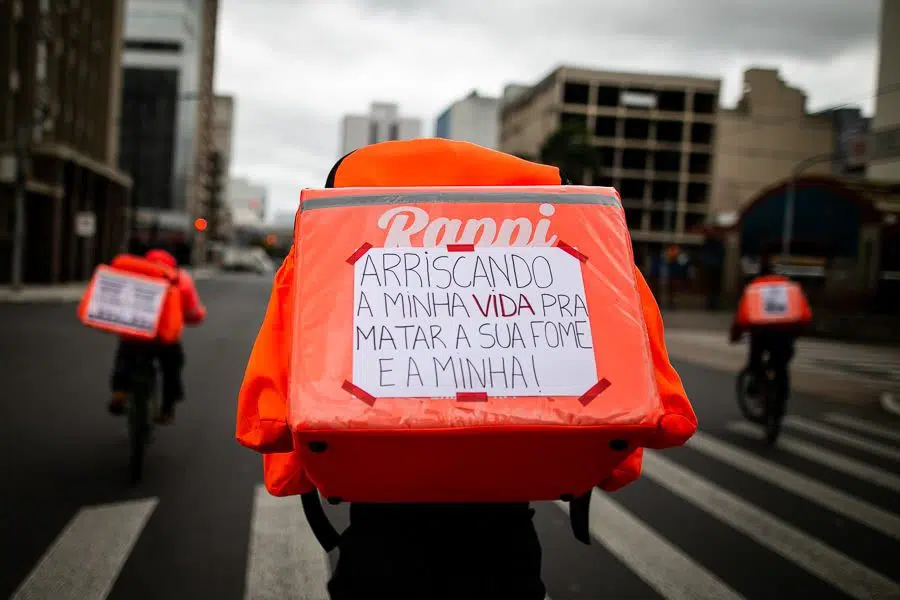 Rappi
ARRISCANDO
A MINHA VIDA PRA
MATAR A SUA FOME
E A MINHA!